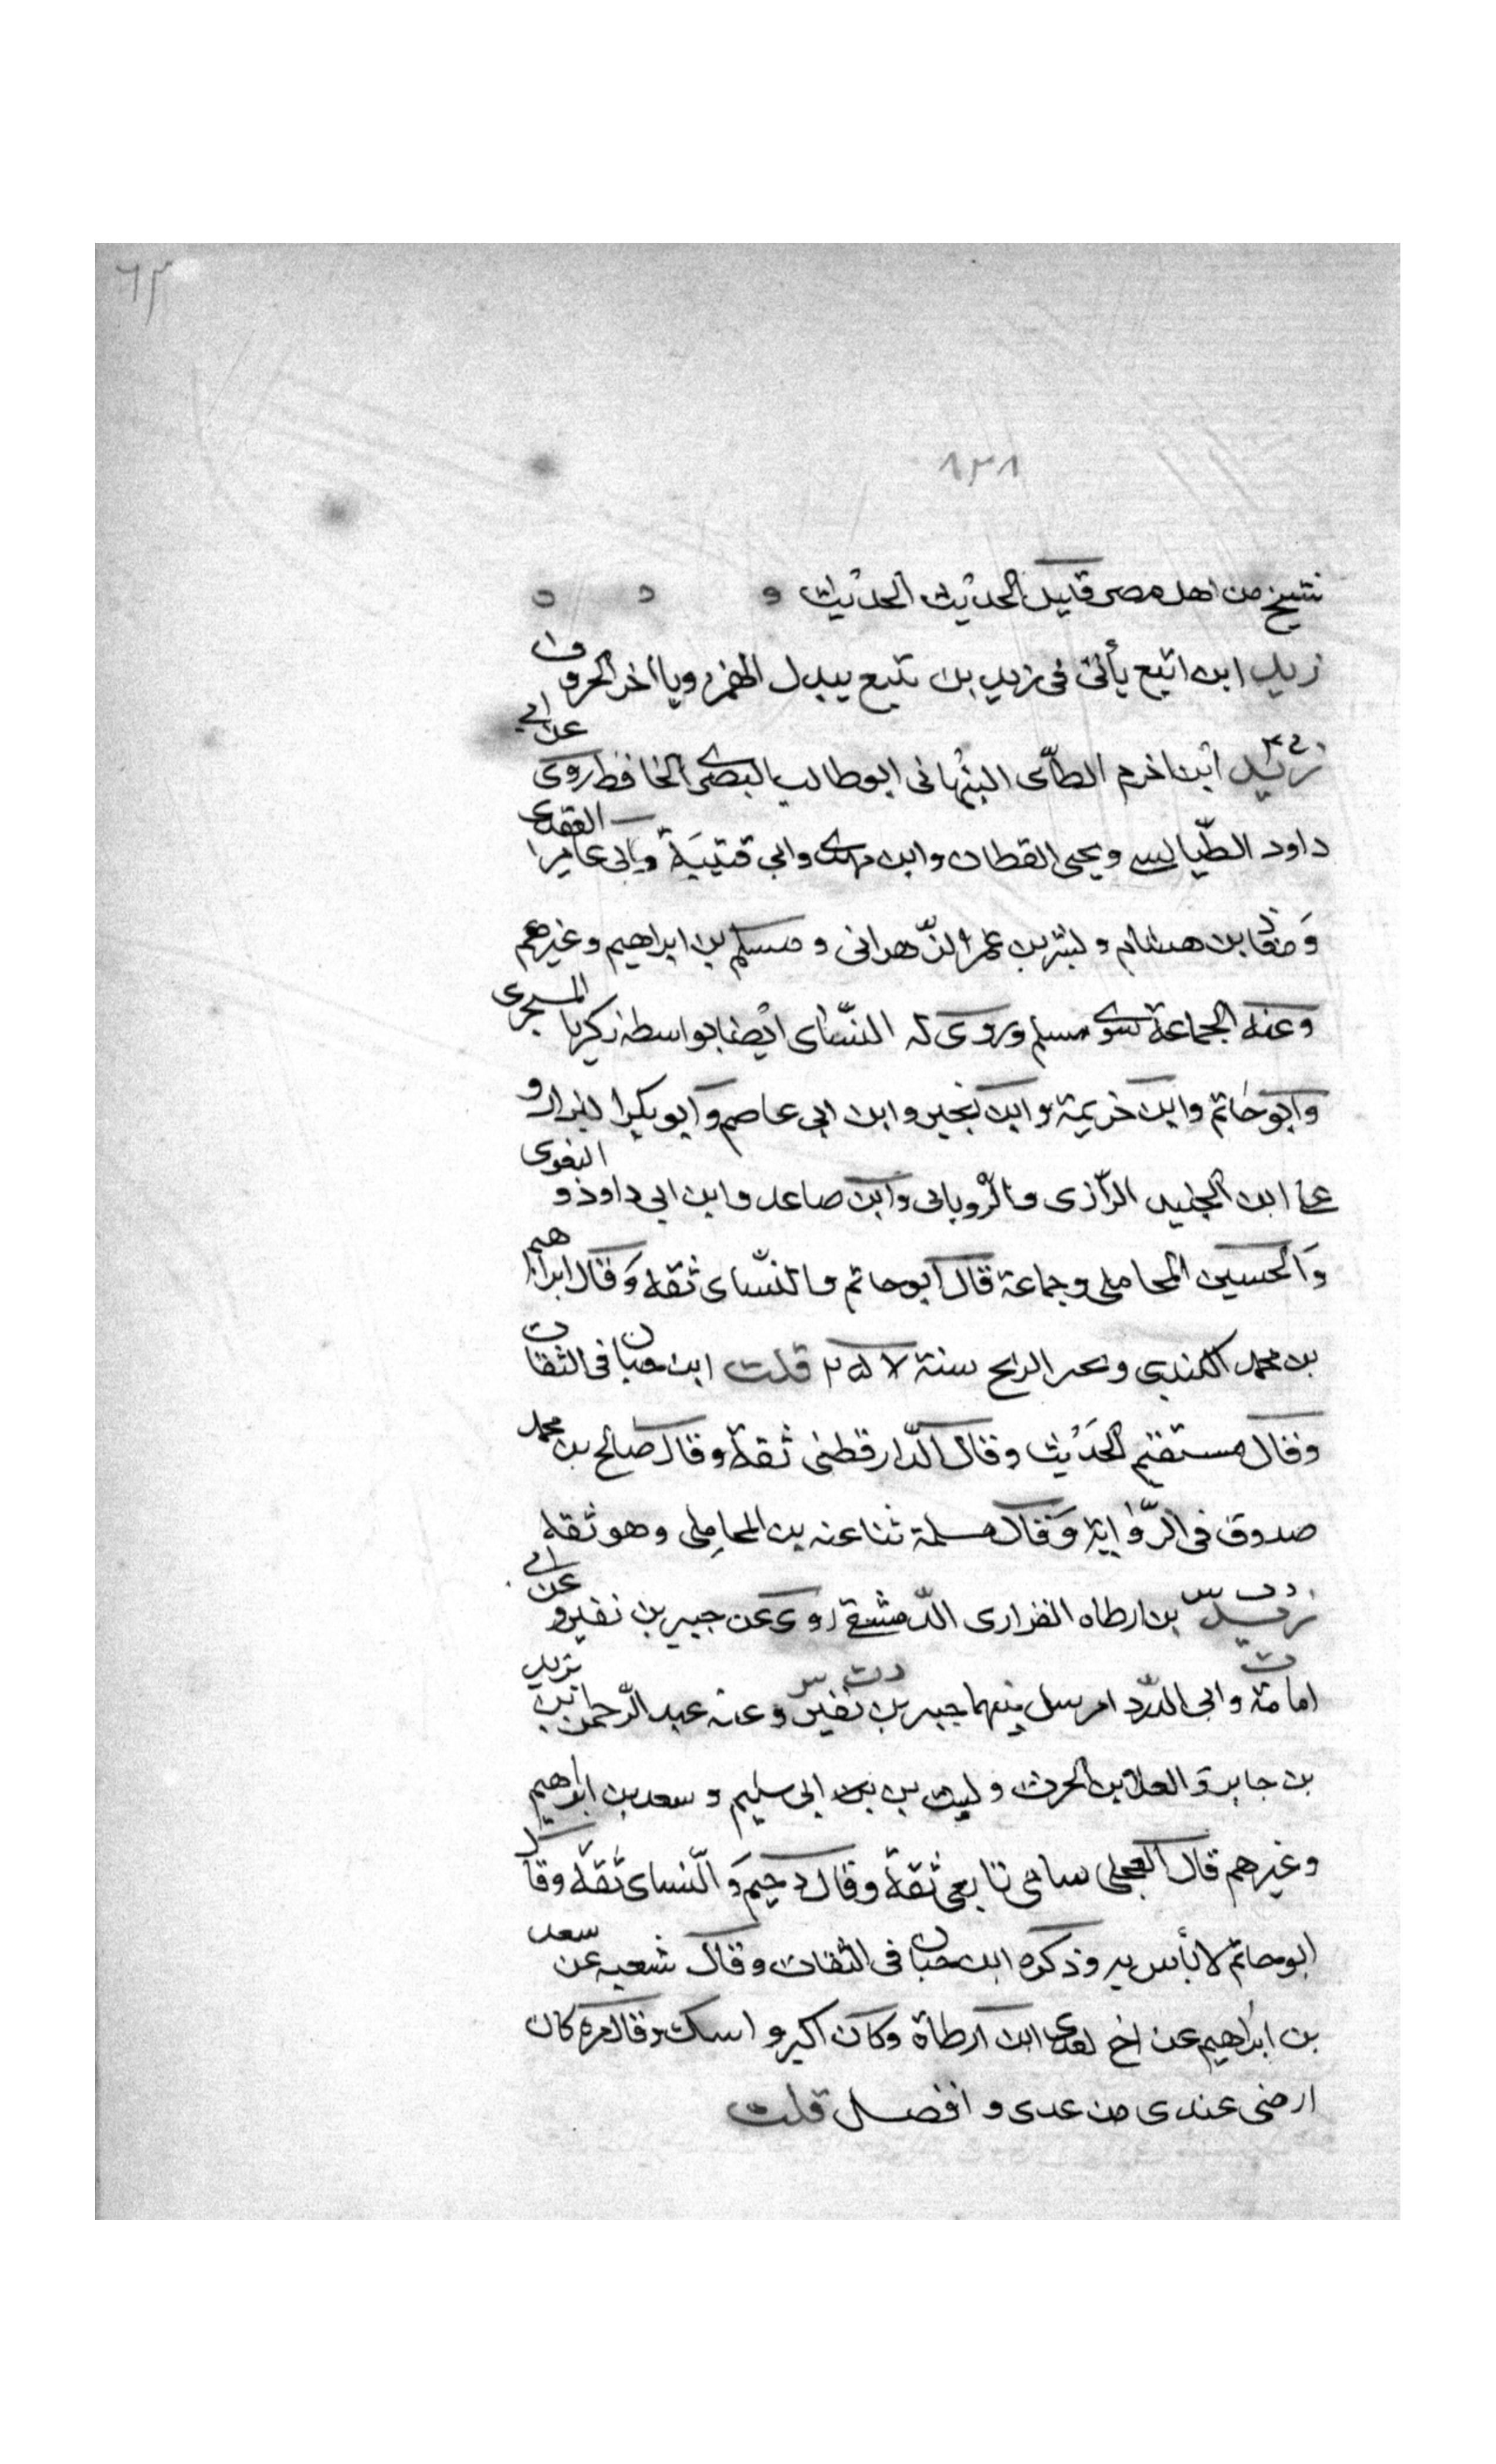 ٦٣
٨٣٨
شيخ من اهل مصر قليل الحديث الحديث
زيد ابن اثيع يأتى فى زيد بن يثيع يبدل الهمز ويا اخر الحروف
زيد ابن اخزم الطائى النبهانى ابو طالب البصرى الحافظ روى عن ابى
داود الطيالسى ويحيى القطان وابن مهدى وابى قتيبة وابى عامر العقدى
ومعاذ بن هشام وبشر بن عمر الزهرانى ومسلم بن ابراهيم وغيرهم
وعنه الجماعة سوى مسلم وروى له النسائى ايضا بواسطة زكريا السجزى
وابو حاتم وابن خزيمة وابن بجير وابن ابى عاصم وابو بكر البزار و
على ابن الجنيد الرازى والرويانى وابن صاعد وابن ابى داود و البغوى
والحسين المحاملى وجماعة قال ابو حاتم والنسائى ثقة وقال ابراهيم
بن محمد الكندى سنة ٢٥٧ قلت ابن حبان فى الثقات
وقال مستقيم الحديث وقال الدارقطنى ثقة وقال صالح بن محمد
صدوق فى الرواية وقال مسلمة ثنا عنه بن المحاملى وهو ثقة
زيد بن ارطاه الفزارى الدمشقى روى عن جبير بن نفير و عن ابى
امامة وابى الدرداء مرسل بينهما جبير بن نفير وعنه عبد الرحمن بن يزيد
بن جابر والعلا بن الحرث وليث بن ابى سليم وسعد بن ابراهيم
وغيرهم قال العجلى سامى تابعى ثقة وقال دحيم والنسائى ثقة وقال
ابو حاتم لا بأس به وذكره ابن حبان فى الثقات وقال شعبه عن سعد
بن ابراهيم عن اخ لعدى ابن ارطاة وكان اكبر و اسك وقال مره كان
ارضى عندى من عدى وافضل قلت